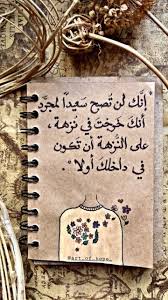 إنَّك لن تُصبح سَعِيداً لمجرَّد
أنَّكَ خَرجْتَ في نزهة ،
على النُّزهة أن تكون
في داخلك أولاً . .
@art_of_hope_